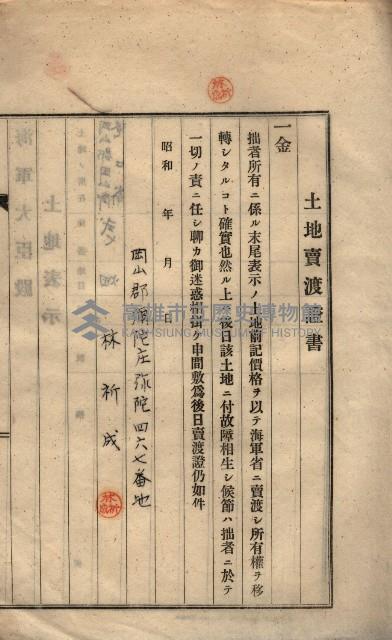 土地賣渡證書
一金
拙者所有ニ係ル末尾表示ノ土地前記價格ヲ以テ海軍省ニ賣渡シ所有權ヲ移
轉シタルコト確實也然ル上ハ後日該土地ニ付故障相生シ候節ハ拙者ニ於テ
一切ノ責ニ任シ聊カ御迷惑相掛ケ申間敷爲後日賣渡證仍如件
昭和 年 月
岡山郡彌陀庄弥陀四六七番地
林祈成
土地表示
海軍大臣殿
高雄市立歷史博物館
KAOHSIUNG MUSEUM OF HISTORY